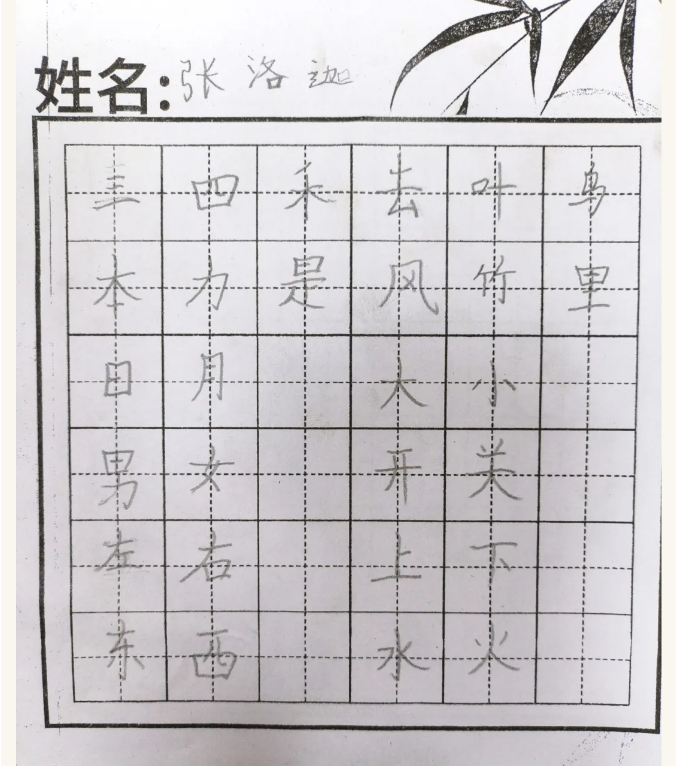 姓名:张洛迦
三四禾去叶鸟
本力是风竹里
日月 大小
男女 开关
左右 上下
东西 水火